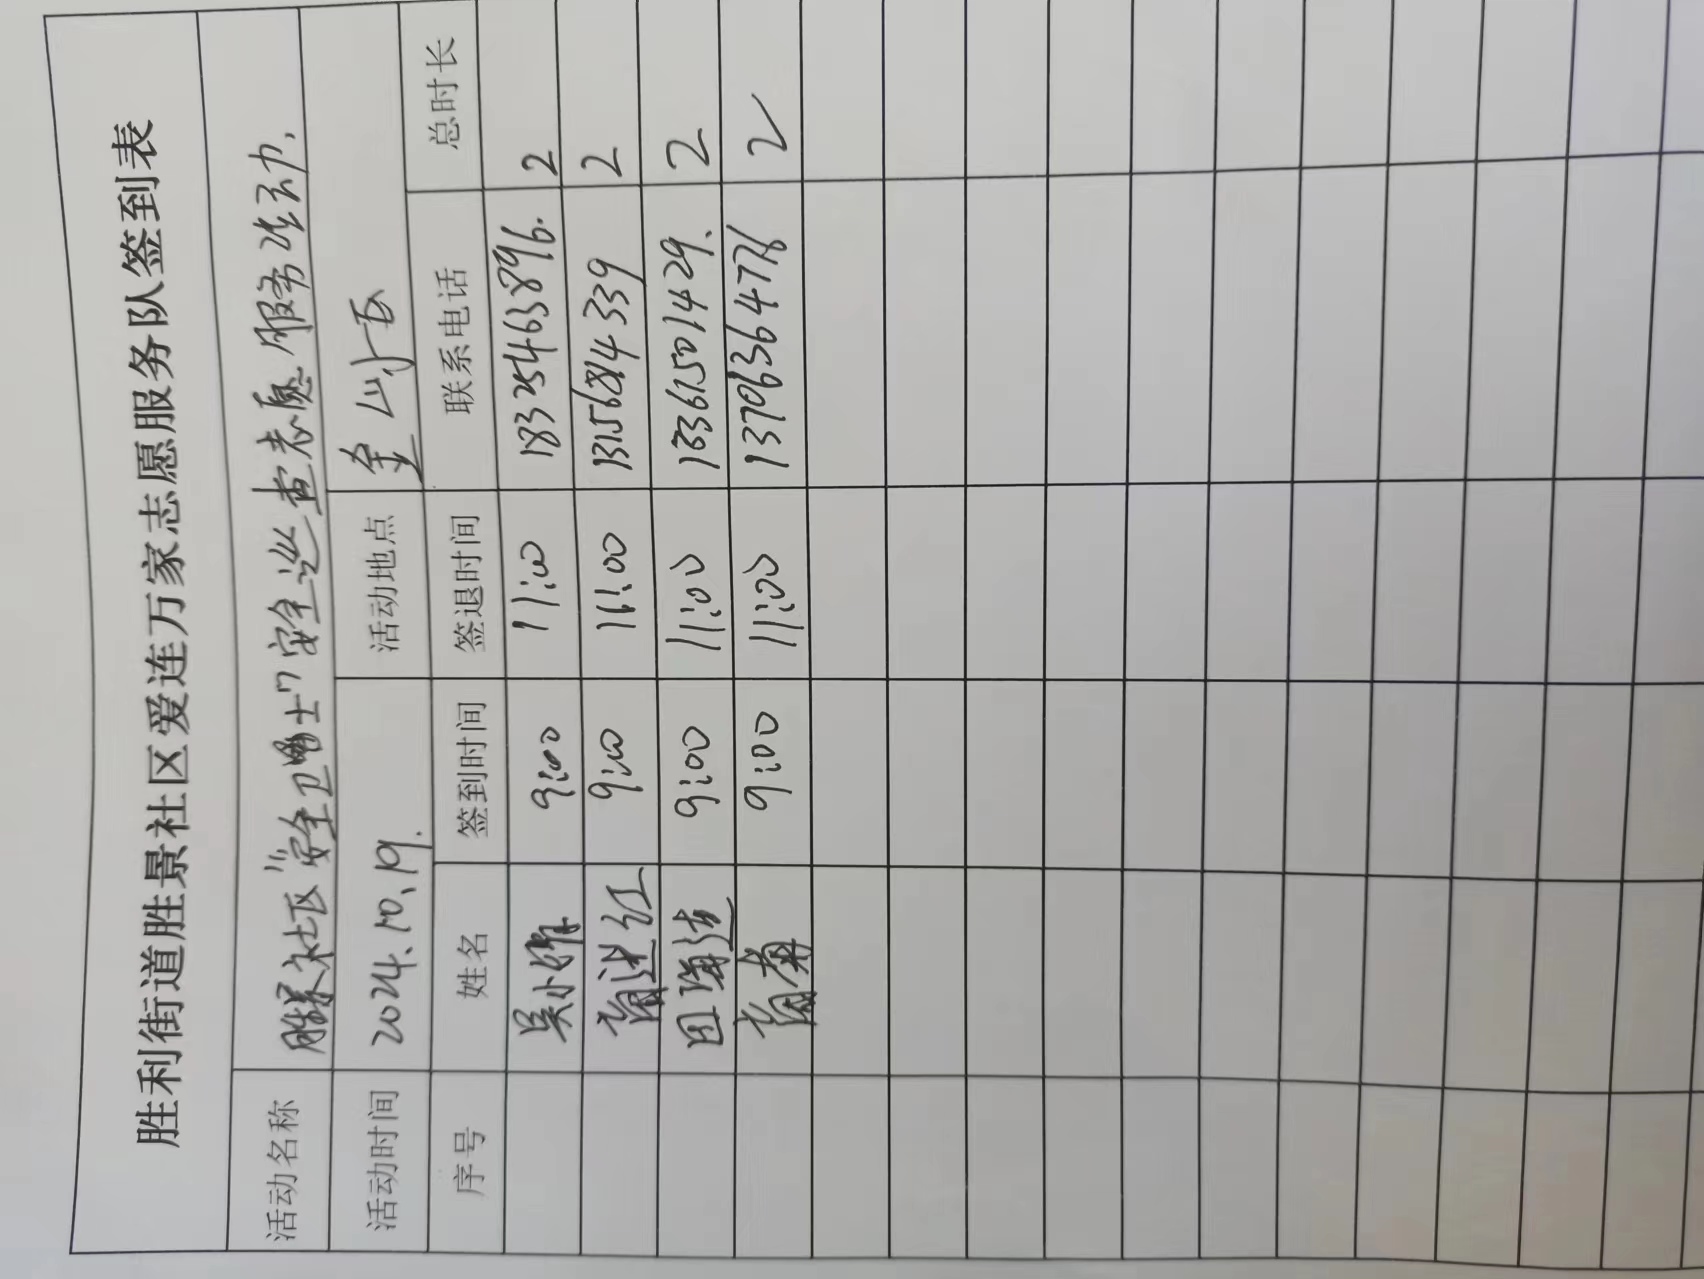 胜利街道胜景社区爱连万家志愿服务队签到表
活动名称 胜景社区“安全卫士”安全巡查志愿服务活动.
活动时间 2024.10.19. 活动地点
序号 姓名 签到时间 签退时间 联系电话 总时长
吴小婷 9:00 11:00 18325463896. 2
9:00 11:00 13156814339 2
9:00 11:00 2
9:00 11:00 2